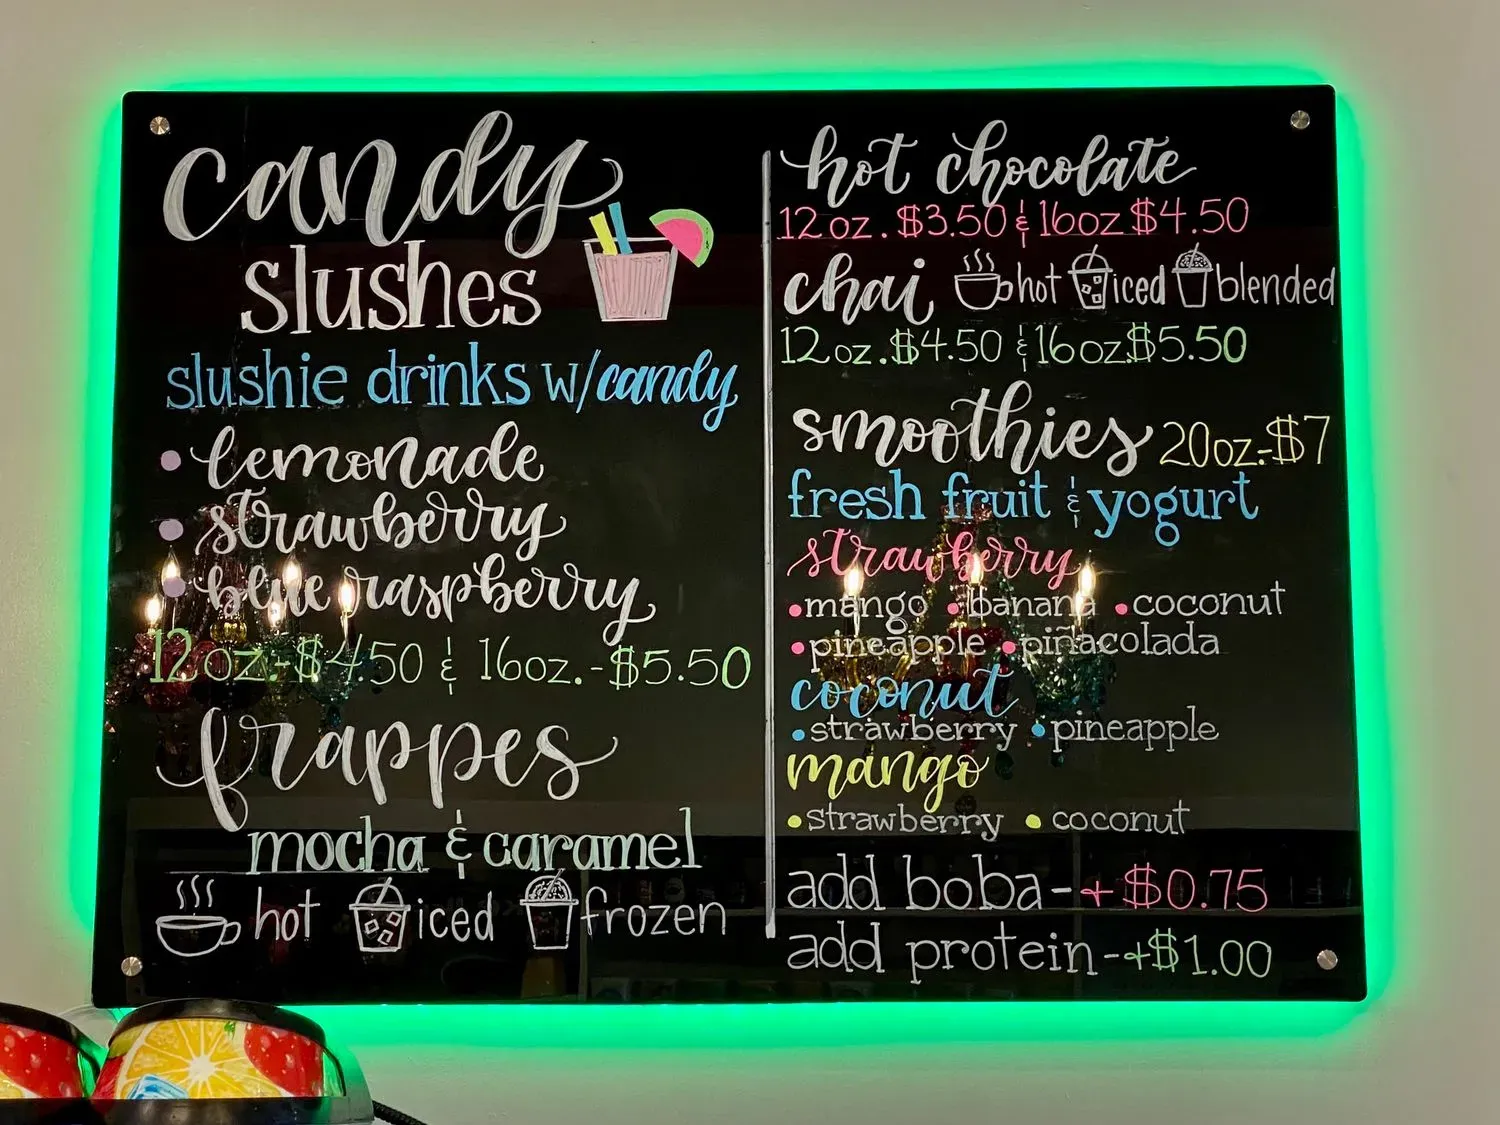 candy
slushes
slushie drinks w/candy
• lemonade
• strawberry
• blue raspberry
12 oz.-$4.50 & 16oz.-$5.50
frappes
mocha & caramel
hot iced frozen
hot chocolate
12 oz. $3.50 & 16oz $4.50
chai hot iced blended
12 oz. $4.50 & 16oz $5.50
smoothies 20oz.-$7
fresh fruit & yogurt
strawberry
• mango • banana • coconut
• pineapple • piñacolada
coconut
• strawberry • pineapple
mango
• strawberry • coconut
add boba-+$0.75
add protein-+$1.00